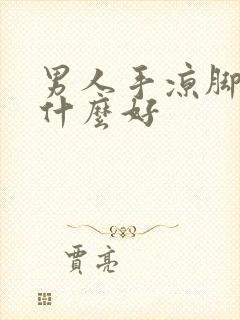 男人手凉脚
什麼好
賈亮